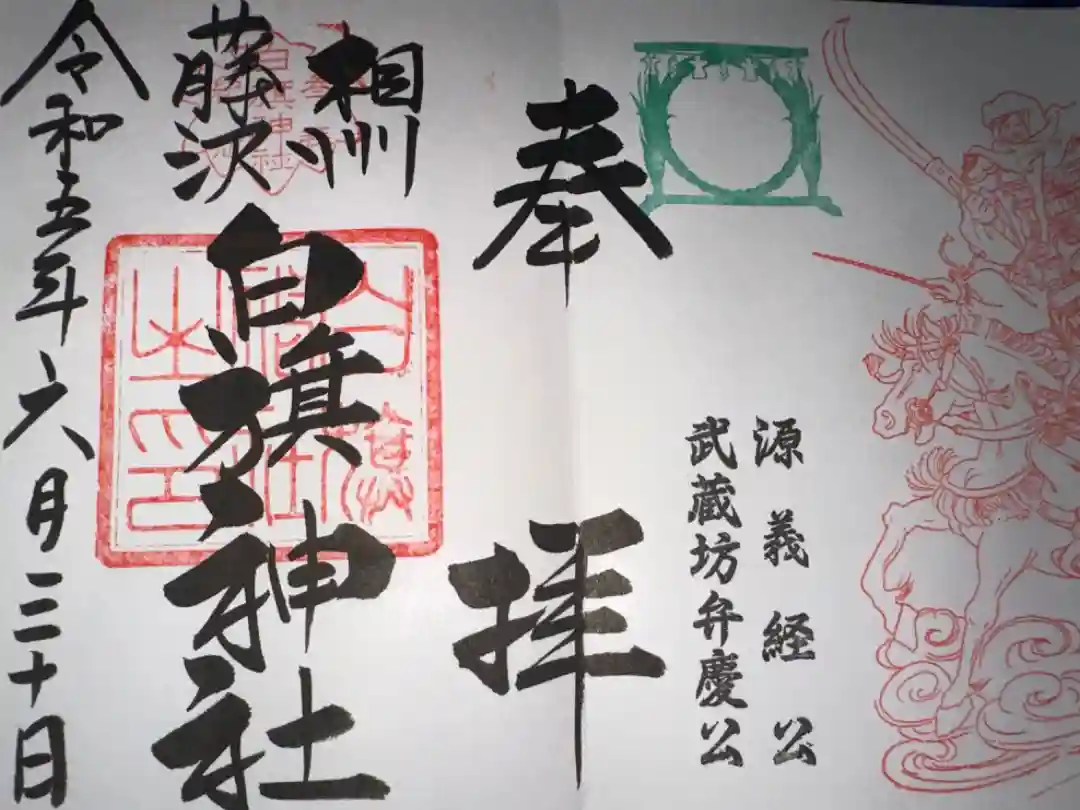 源義経公
武蔵坊弁慶公
奉拝
相州
藤沢
白旗神社
白旗神社之印
令和五年六月三十日